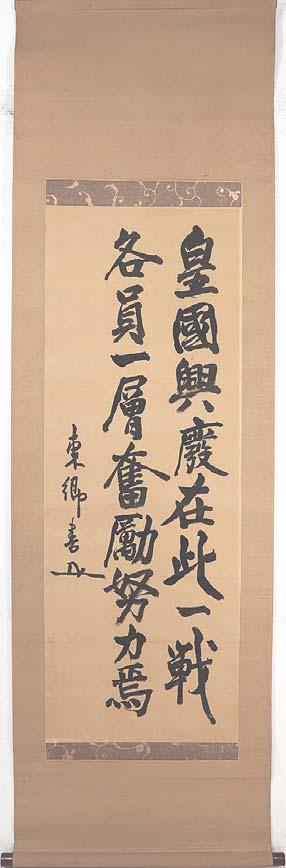 皇國興廢在此一戰
各員一層奮勵努力焉
東郷書